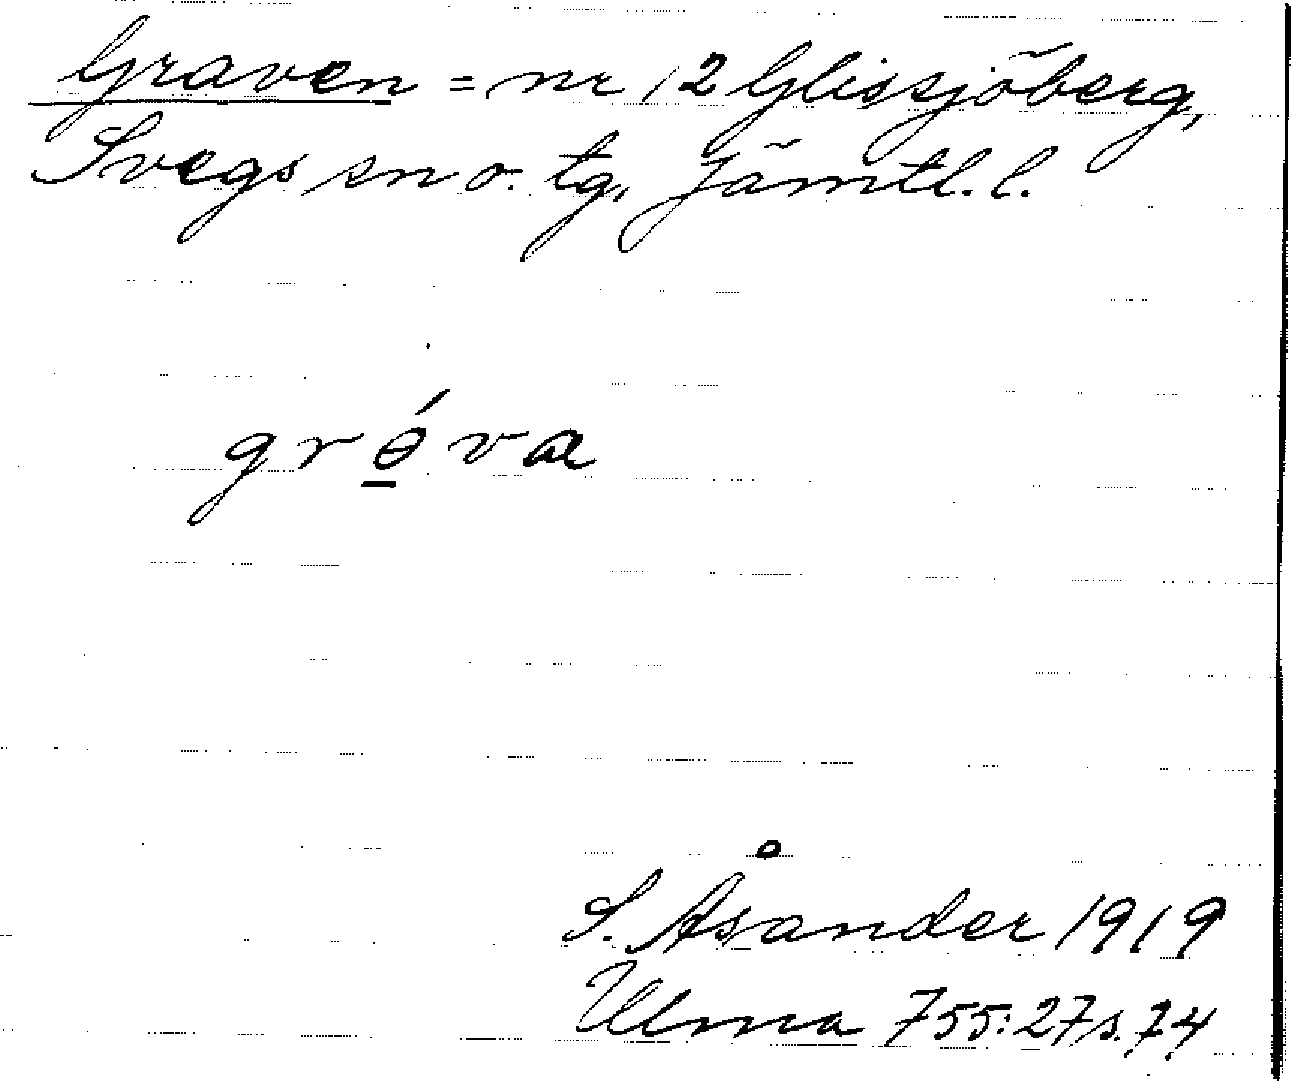 Graven = nr 12 Glissjöberg,
Svegs sn o. tg, Jämtl. l.
grɵ̲́va
S. Åsander 1919
Ulma 755:27 s. 74